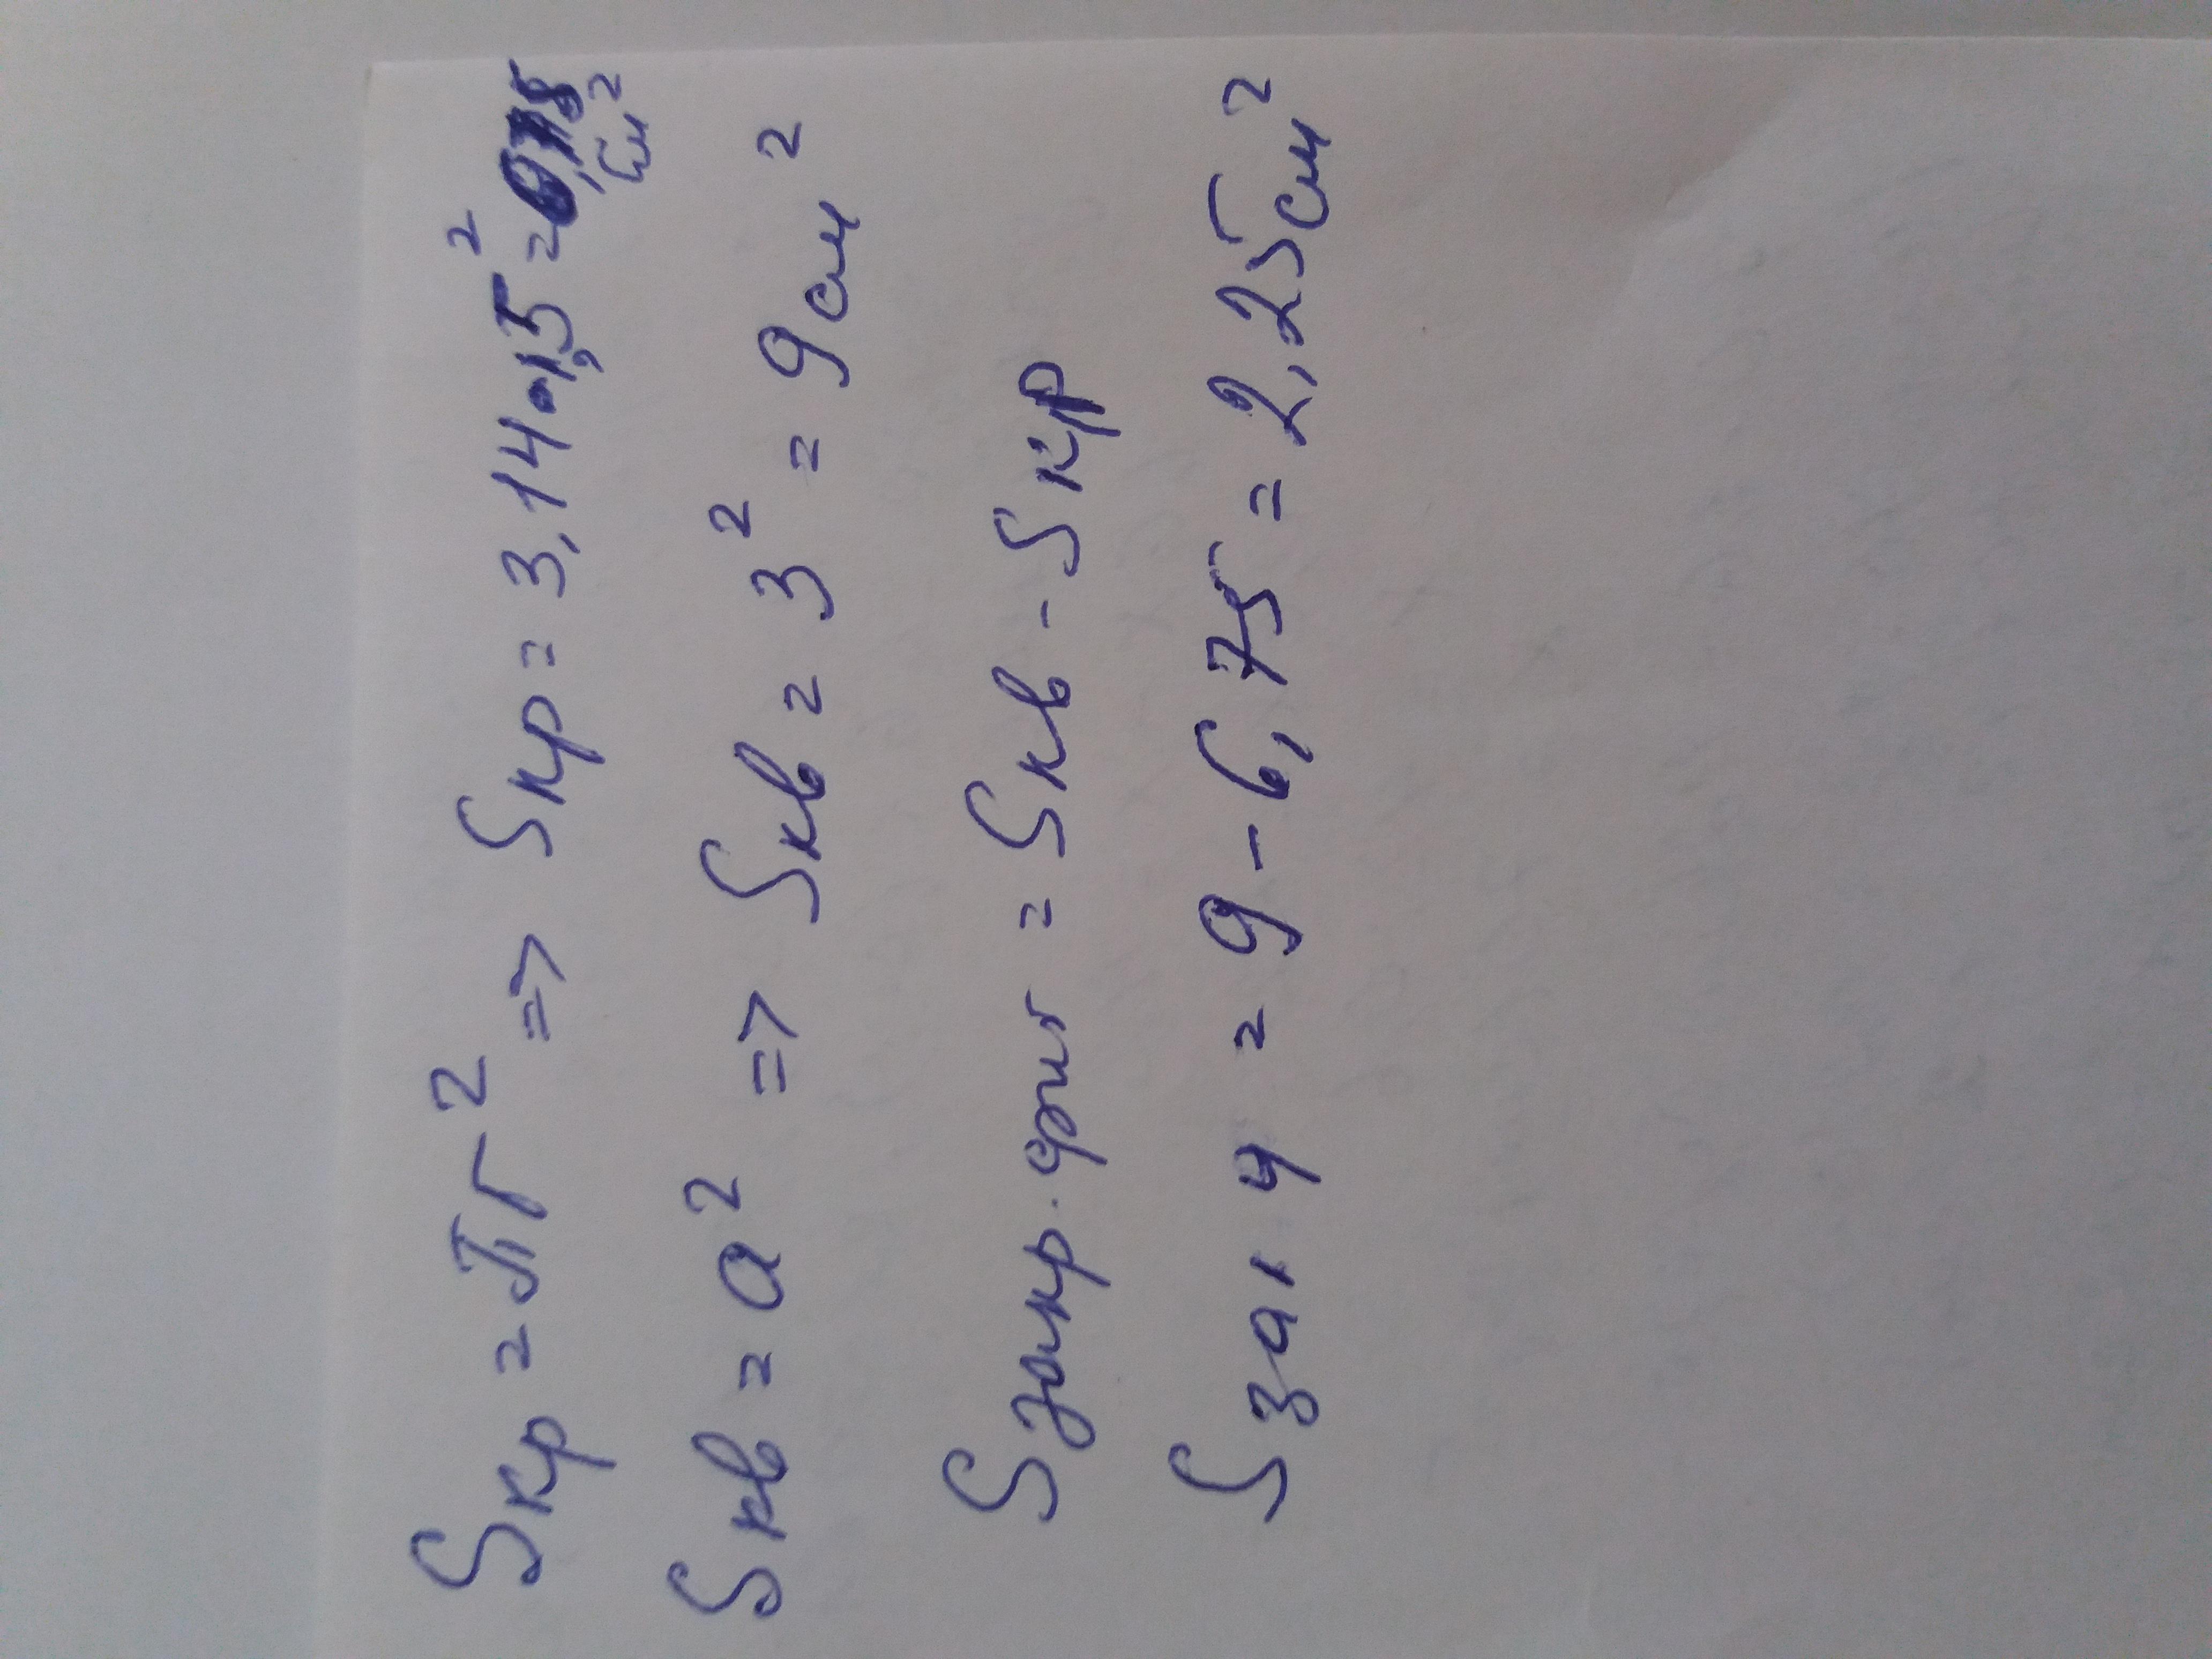 Sкр = πr² => Sкр = 3,14•1,5² =
см²
Sкв = a² => Sкв = 3² = 9 см²
Sзакр. фиг = Sкв - Sкр
= 9 - 6,75 = 2,25 см²